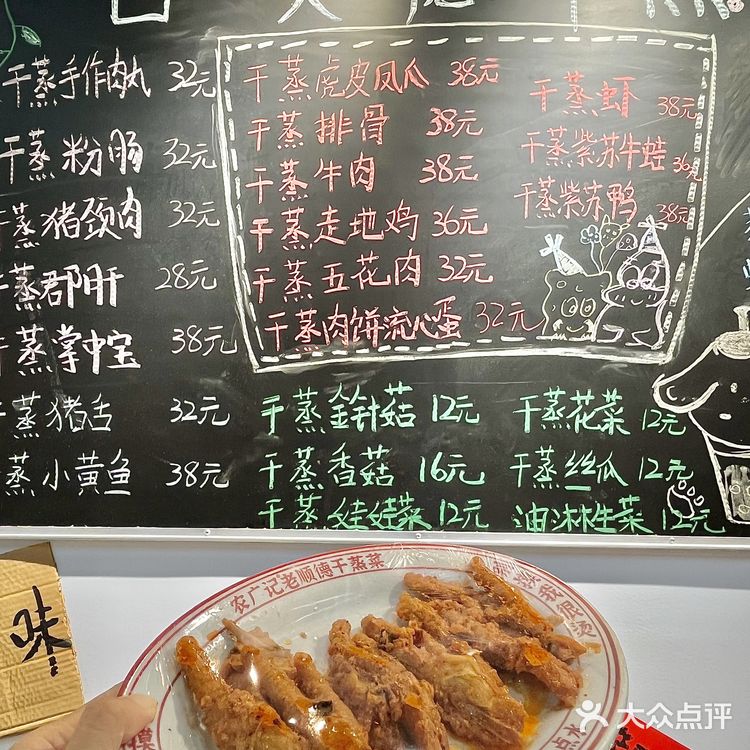 干蒸手作肉丸 32元
干蒸粉肠 32元
干蒸猪颈肉 32元
干蒸郡肝 28元
干蒸掌中宝 38元
干蒸猪舌 32元
蒸小黄鱼 38元
干蒸虎皮凤爪 38元
干蒸排骨 38元
干蒸牛肉 38元
干蒸走地鸡 36元
干蒸五花肉 32元
干蒸肉饼流心蛋 32元
干蒸虾 38元
干蒸紫苏牛蛙 36元
干蒸紫苏鸭 38元
干蒸金针菇 12元
干蒸香菇 16元
干蒸娃娃菜 12元
干蒸花菜 12元
干蒸丝瓜 12元
油淋生菜 12元
味
农广记老顺德干蒸菜
摸我很烫
大众点评